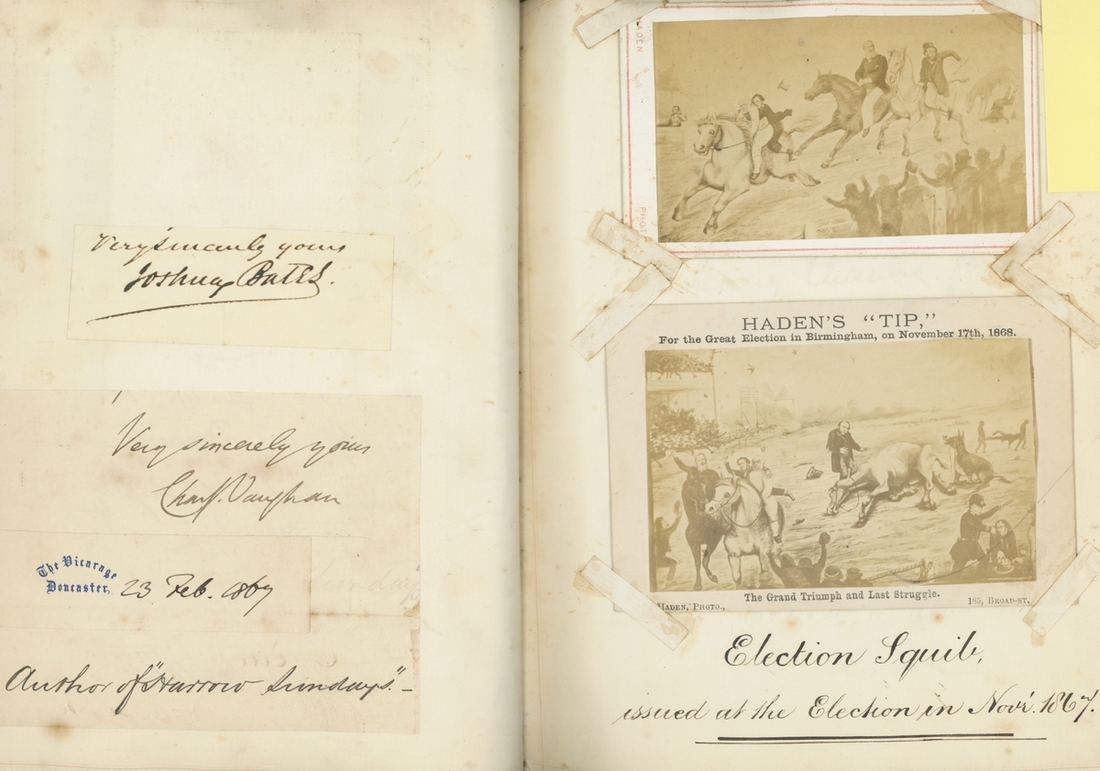 Very sincerely yours
Joshua Bates.
Very sincerely yours
Chas J. Vaughan
The Vicarage
Doncaster,
23 Feb. 1867
Author of "Harrow Sundays." -
HADEN'S "TIP,"
For the Great Election in Birmingham, on November 17th, 1868.
The Grand Triumph and Last Struggle.
HADEN, PHOTO.,
185, BROAD-ST.
Election Squib,
issued at the Election in Novr. 1867.